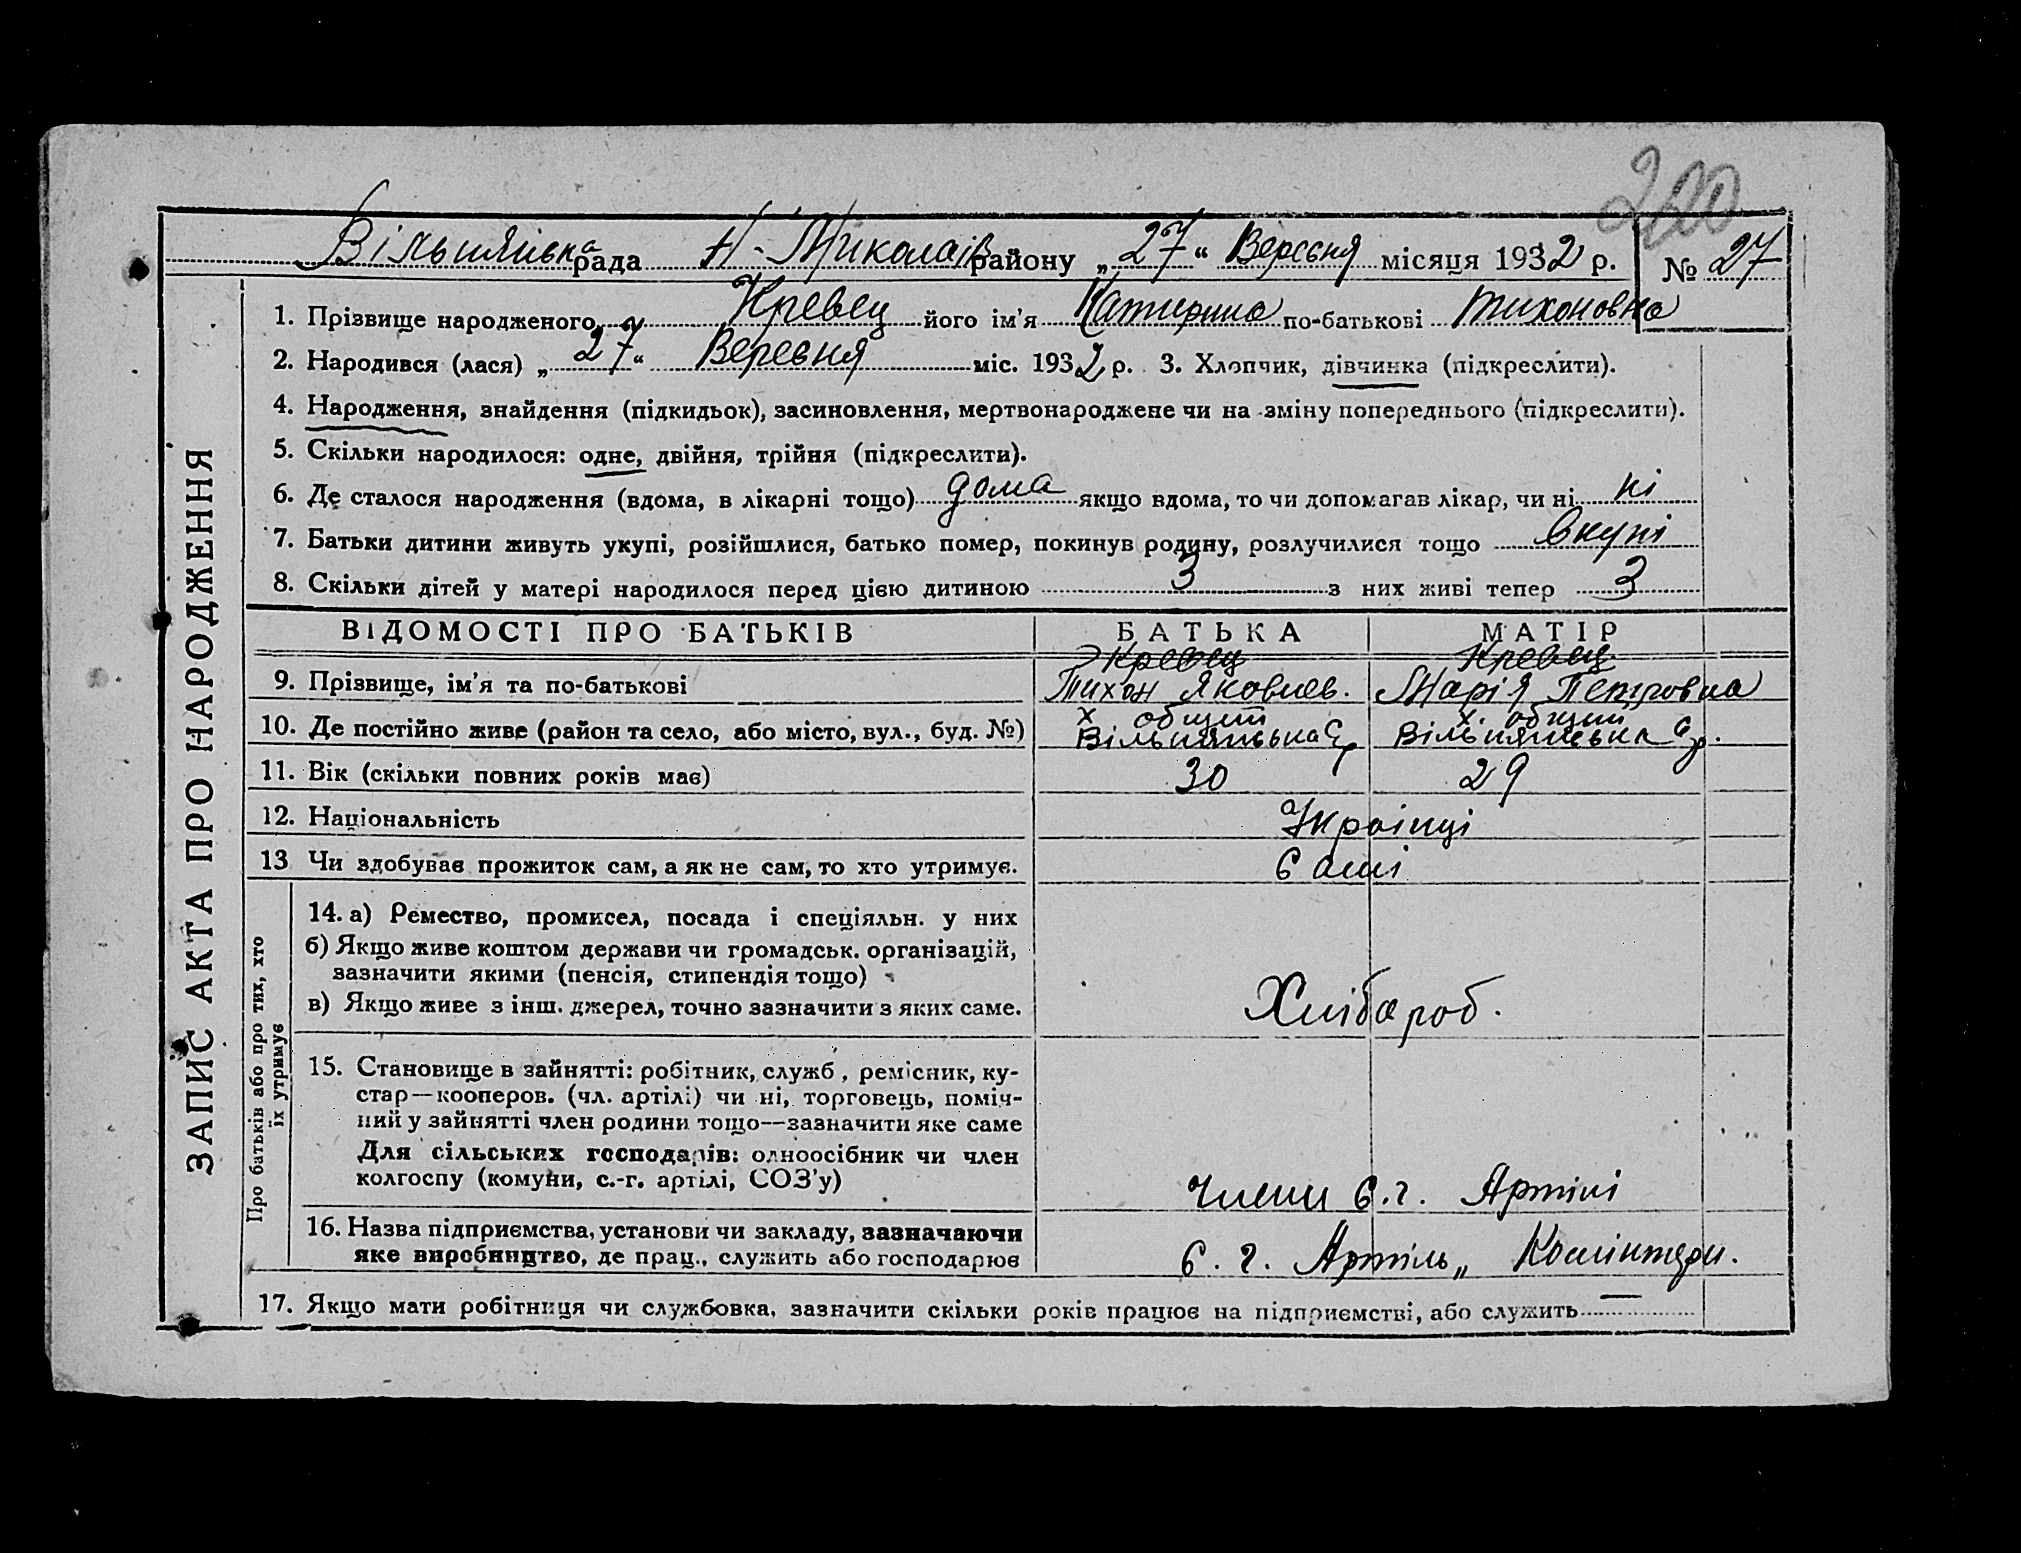 200
Вільнянська рада Н-Миколаїв району „27“ Вересня місяця 1932 р. № 27
ЗАПИС АКТА ПРО НАРОДЖЕННЯ
1. Прізвище народженого Кревец його ім'я Катерина по-батькові Тихоновна
2. Народився (лася) „27“ Вересня міс. 1932 р. 3. Хлопчик, дівчинка (підкреслити).
4. Народження, знайдення (підкидьок), засиновлення, мертвонароджене чи на зміну попереднього (підкреслити).
5. Скільки народилося: одне, двійня, трійня (підкреслити).
6. Де сталося народження (вдома, в лікарні тощо) дома якщо вдома, то чи допомагав лікар, чи ні ні
7. Батьки дитини живуть укупі, розійшлися, батько помер, покинув родину, розлучилися тощо вкупі
8. Скільки дітей у матері народилося перед цією дитиною 3 з них живі тепер 3
ВІДОМОСТІ ПРО БАТЬКІВ БАТЬКА МАТІР
Кревец Кревец
9. Прізвище, ім'я та по-батькові Тихон Яковлев. Марія Петровна
х. общий х. общий
10. Де постійно живе (район та село, або місто, вул., буд. №) Вільнянська с/р Вільнянська с/р.
11. Вік (скільки повних років має) 30 29
12. Національність Українці
13 Чи здобував прожиток сам, а як не сам, то хто утримує. Самі
Про батьків або про тих, хто
їх утримує
14. а) Ремество, промисел, посада і спеціяльн. у них
б) Якщо живе коштом держави чи громадськ. організацій,
зазначити якими (пенсія, стипендія тощо)
в) Якщо живе з інш. джерел, точно зазначити з яких саме.
Хлібароб.
15. Становище в зайнятті: робітник, служб., ремісник, ку-
стар—кооперов. (чл. артілі) чи ні, торговець, поміч-
ний у зайнятті член родини тощо—зазначити яке саме
Для сільських господарів: одноосібник чи член
колгоспу (комуни, с.-г. артілі, СОЗ'у) Члени С.г. Артілі
16. Назва підприємства, установи чи закладу, зазначаючи
яке виробництво, де прац., служить або господарює С. г. Артіль „Комінтерн.
17. Якщо мати робітниця чи службовка, зазначити скільки років працює на підприємстві, або служить —